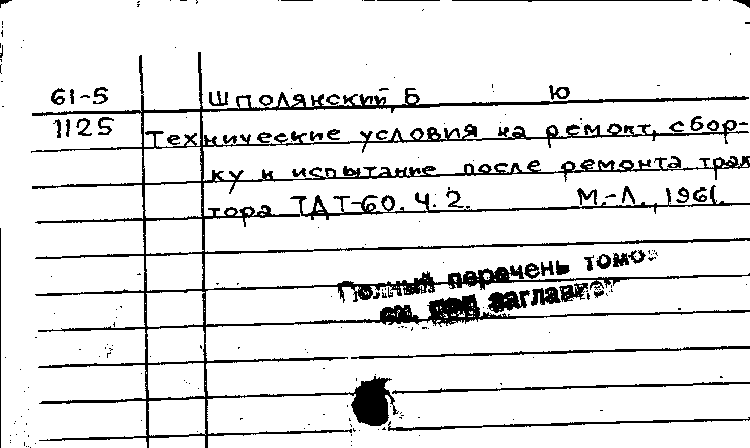 61-5 Шполянский, Б Ю
1125 Технические условия на ремонт, сбор-
ку и испытание после ремонта трак
тора ТДТ-60. Ч. 2. М.-Л., 1961.
Полный перечень томов
см. под заглавием